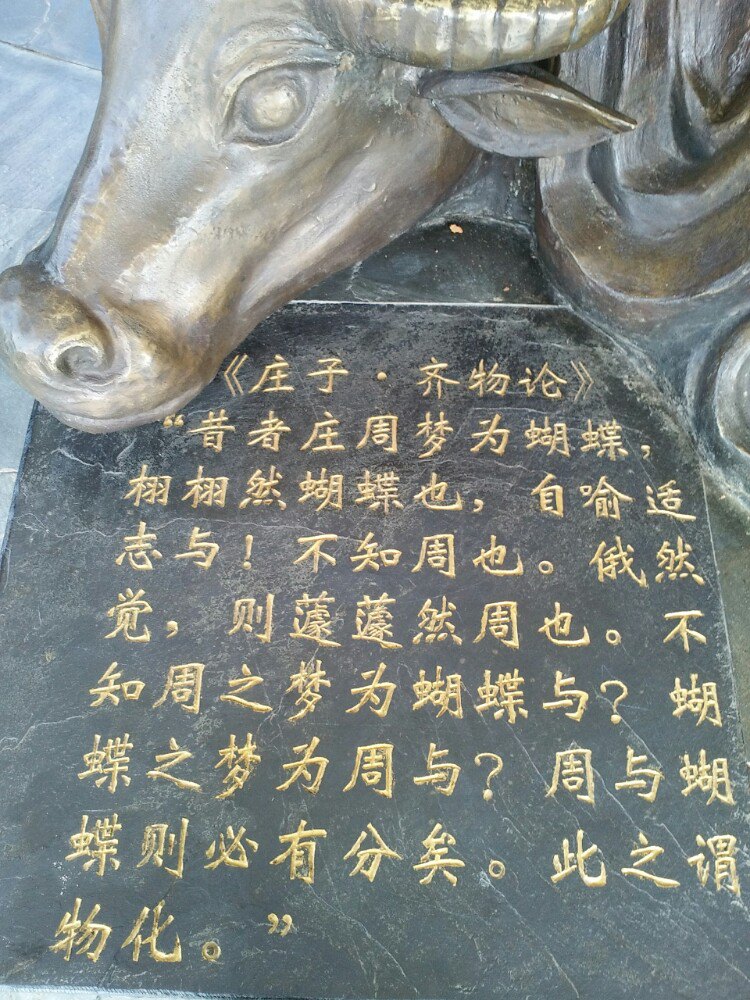 《庄子·齐物论》
“昔者庄周梦为蝴蝶，
栩栩然蝴蝶也，自喻适
志与！不知周也。俄然
觉，则蘧蘧然周也。不
知周之梦为蝴蝶与？蝴
蝶之梦为周与？周与蝴
蝶则必有分矣。此之谓
物化。”